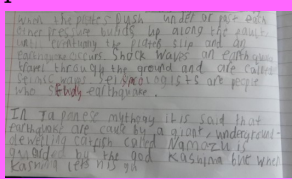 when the plates push under or past each
other pressure builds up along the fault
until eventually the plates slip and an
earthquake occurs. Shock waves of an earthquake
travel through the ground and are called
seismic waves. Seismologists are people
who study earthquake.
In Japanese mythology it is said that
earthquake are cause by a giant underground-
dwelling catfish called Namazu is
guarded by the god Kashima but when
Kashima lets his gu